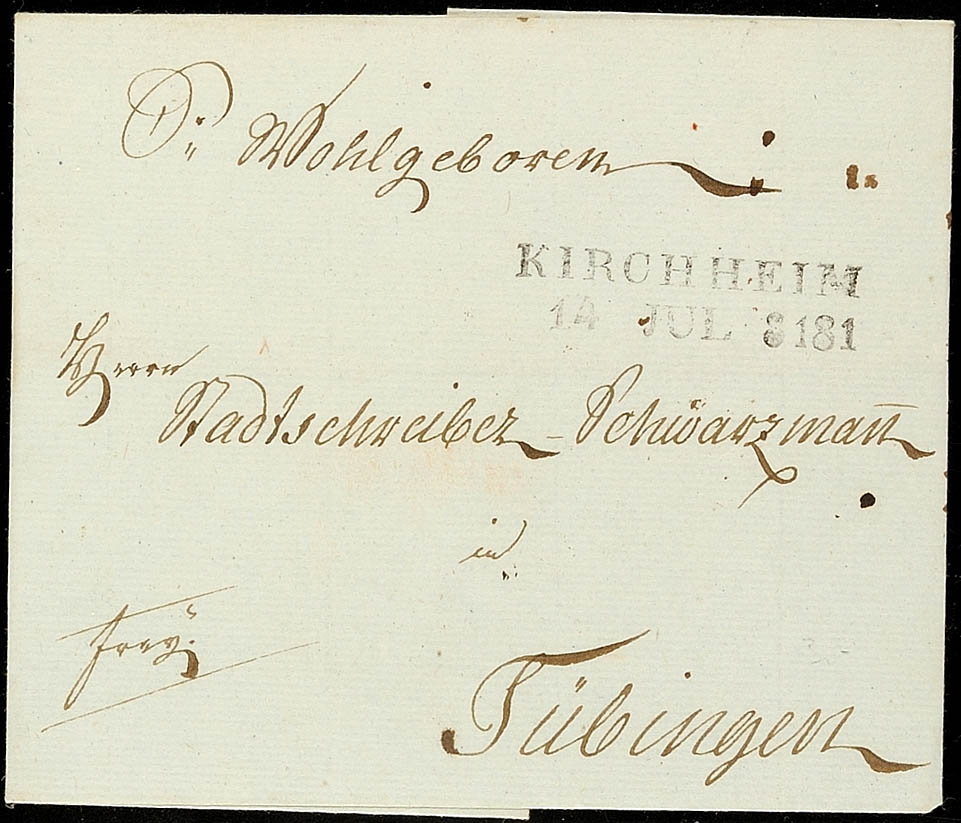 Sr Wohlgeboren
KIRCHHEIM
14 JUL 8181
Herrn
Stadtschreiber Schwarzmañ
in
frey.
Tübingen